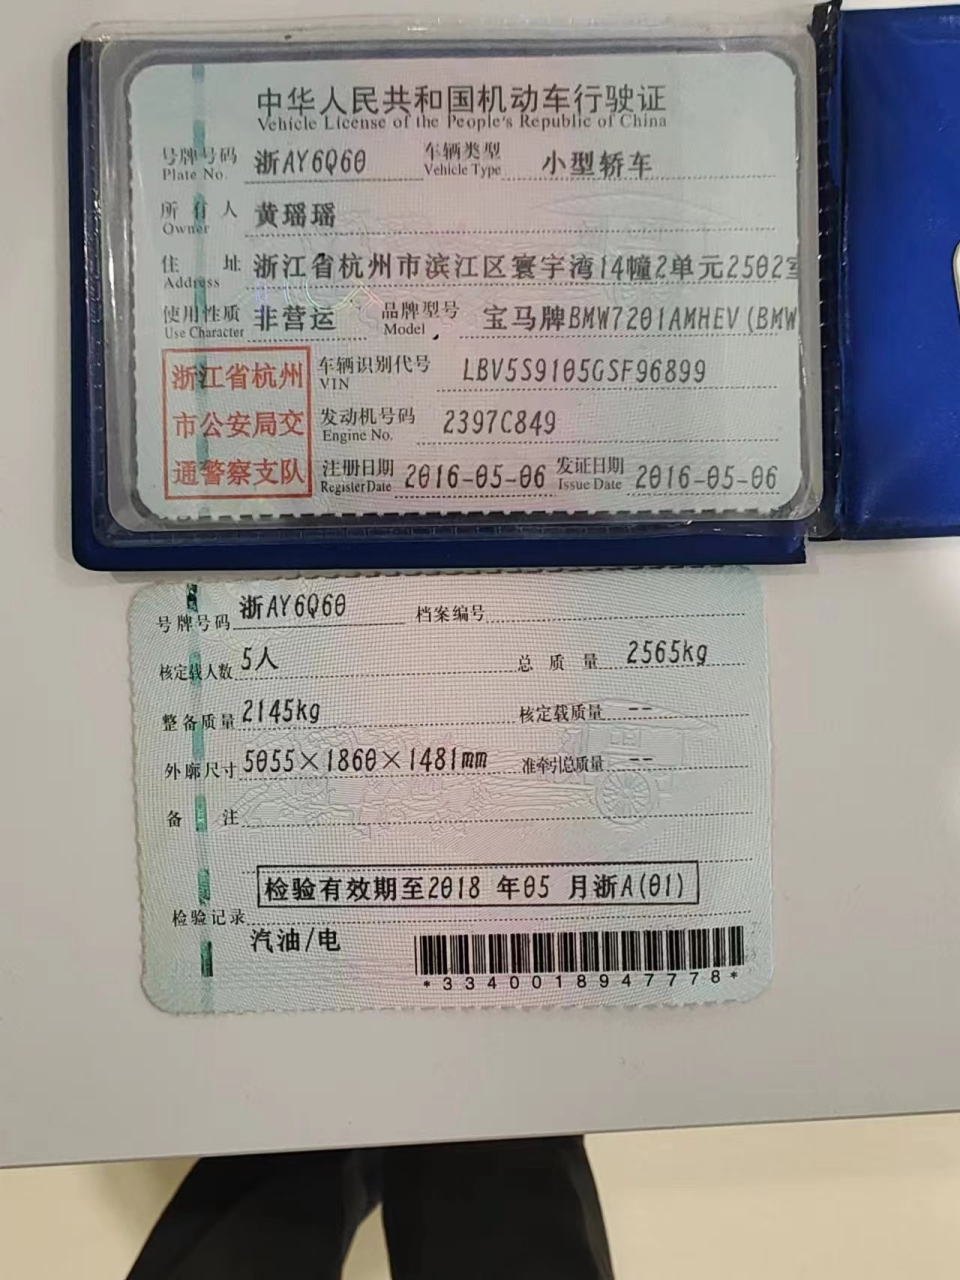 中华人民共和国机动车行驶证
Vehicle License of the People's Republic of China
号牌号码 浙AY6Q60 车辆类型 小型轿车
Plate No. Vehicle Type
所有人 黄瑶瑶
Owner
住址 浙江省杭州市滨江区寰宇湾14幢2单元2502室
Address
使用性质 非营运 品牌型号 宝马牌BMW7201AMHEV(BMW
Use Character Model
浙江省杭州
市公安局交
通警察支队
车辆识别代号 LBV5S9105GSF96899
VIN
发动机号码 2397C849
Engine No.
注册日期 2016-05-06 发证日期 2016-05-06
Register Date Issue Date
号牌号码 浙AY6Q60 档案编号
核定载人数 5人 总质量 2565kg
整备质量 2145kg 核定载质量 --
外廓尺寸 5055×1860×1481mm 准牵引总质量 --
备注
检验有效期至2018 年05 月浙A(01)
检验记录
汽油/电
*3340018947778*